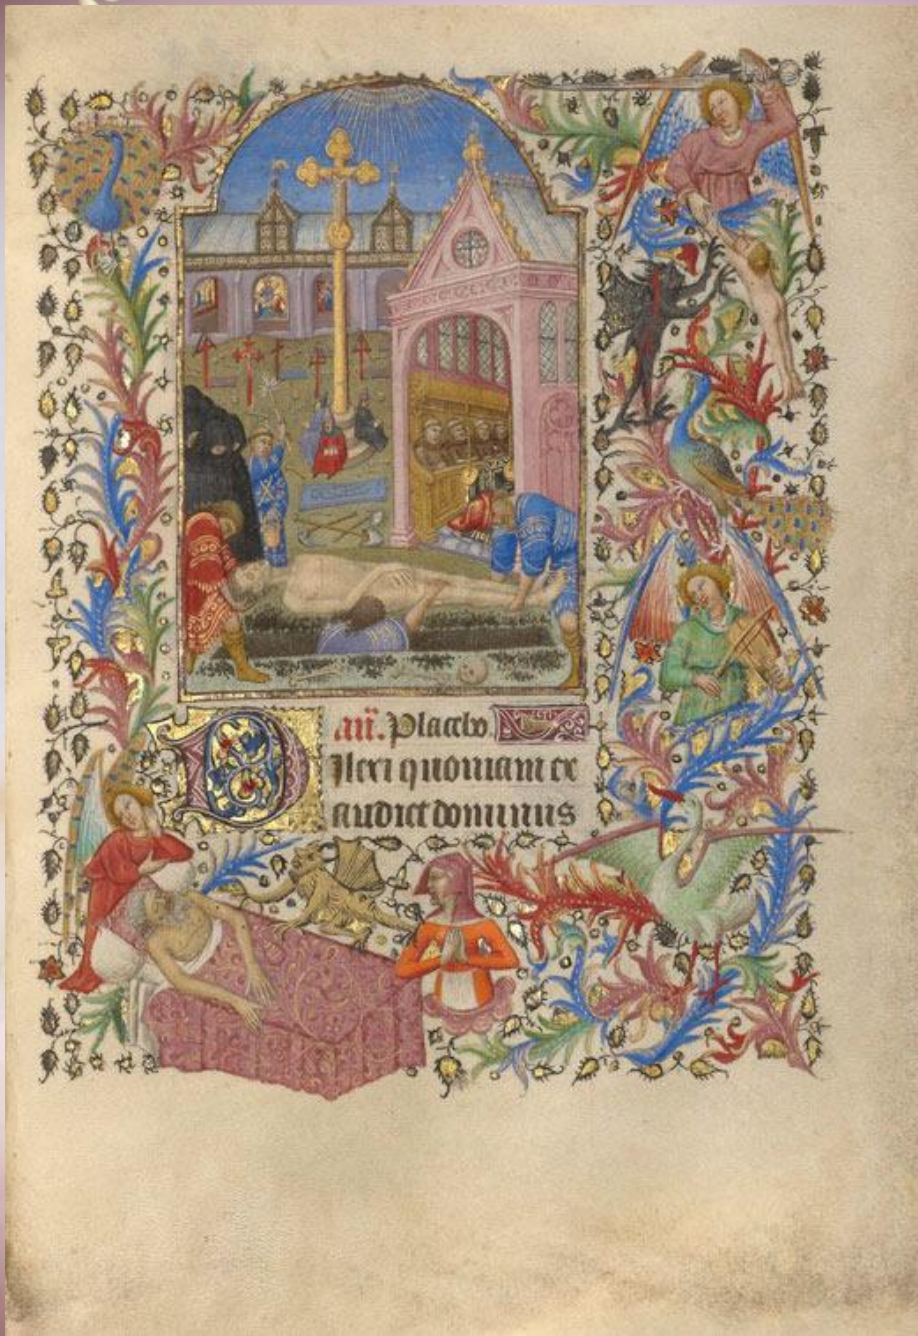 añ. Placebo
Dilexi quoniam ex
audiet dominus